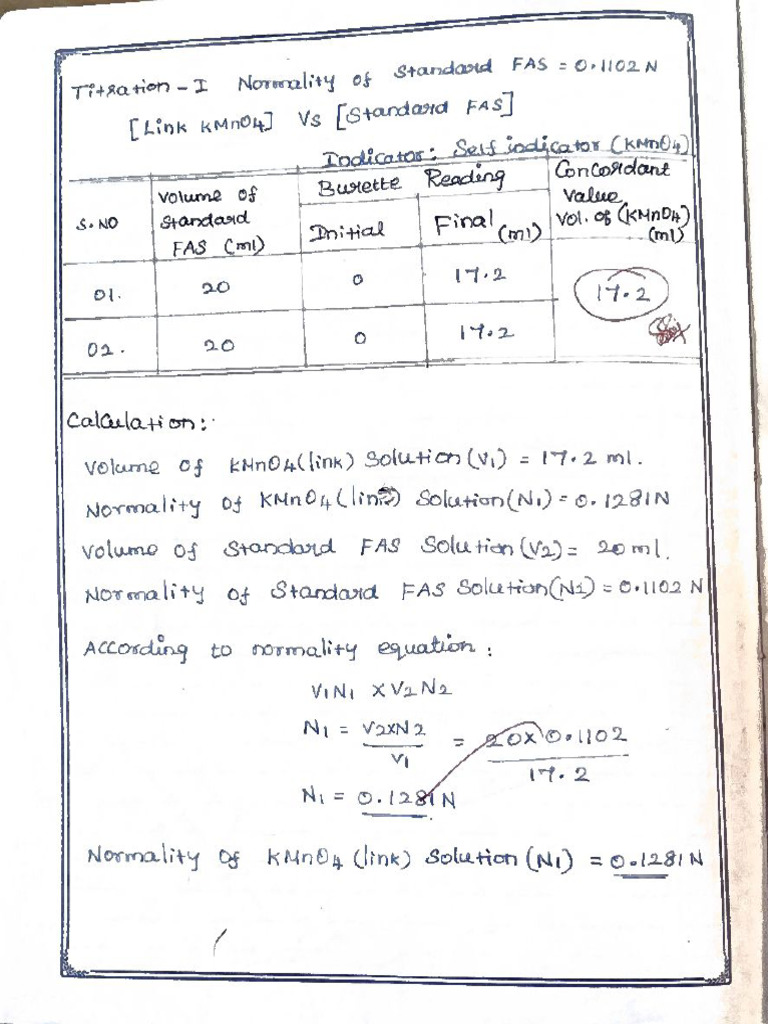 Titration - I Normality of Standard FAS = 0.1102 N
[Link KMnO4] Vs [Standard FAS]
Indicator: Self indicator (KMnO4)
S.NO Volume of Standard FAS (ml) Burette Reading Initial Final (ml) Concordant Value Vol. of (KMnO4) (ml)
01. 20 0 17.2 17.2
02. 20 0 17.2
Calculation:
Volume of KMnO4 (link) Solution (V1) = 17.2 ml.
Normality of KMnO4 (link) Solution (N1) = 0.1281N
Volume of Standard FAS Solution (V2) = 20 ml.
Normality of Standard FAS Solution (N2) = 0.1102 N
According to normality equation:
V1N1 X V2N2
N1 = V2XN2 / V1 = 20X0.1102 / 17.2
N1 = 0.1281N
Normality of KMnO4 (link) Solution (N1) = 0.1281N